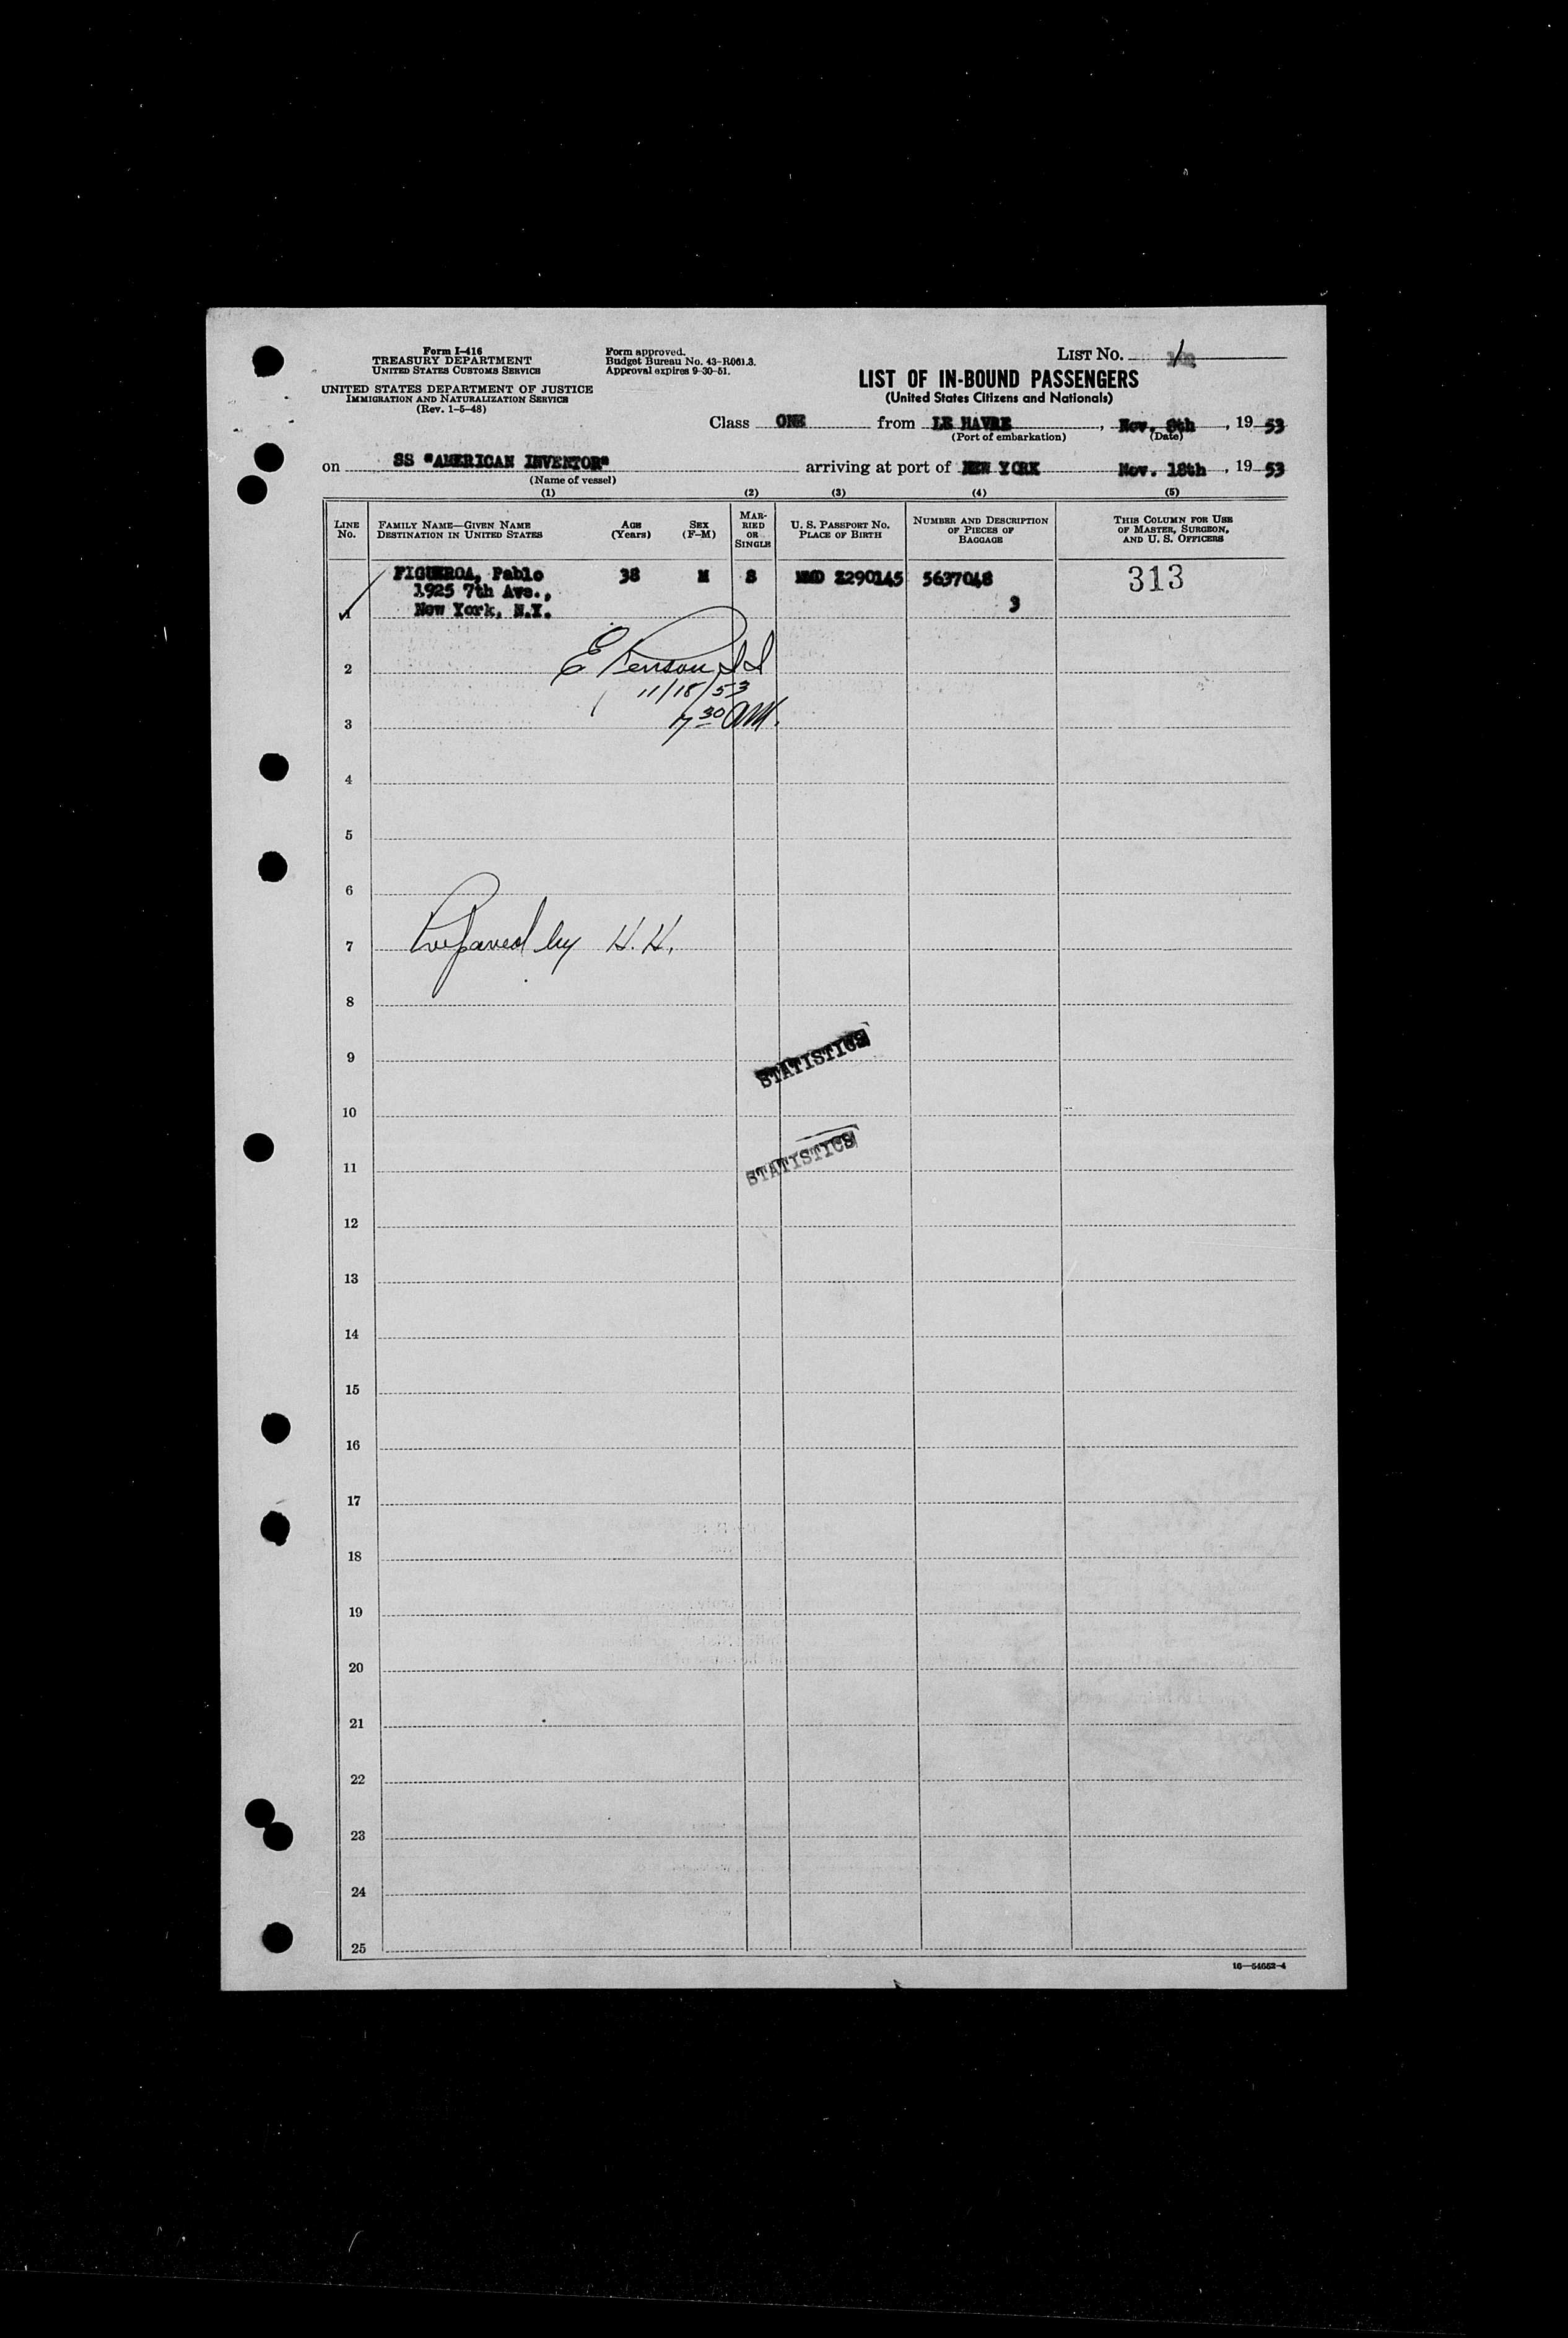 Form I-416
TREASURY DEPARTMENT
UNITED STATES CUSTOMS SERVICE
UNITED STATES DEPARTMENT OF JUSTICE
IMMIGRATION AND NATURALIZATION SERVICE
(Rev. 1-5-48)
Form approved.
Budget Bureau No. 43-R061.3.
Approval expires 9-30-51.
LIST NO.
LIST OF IN-BOUND PASSENGERS
(United States Citizens and Nationals)
Class ONE from LE HAVRE, Nov. 8th, 1953
(Port of embarkation) (Date)
on SS "AMERICAN INVENTOR" arriving at port of NEW YORK Nov. 18th, 1953
(Name of vessel)
(1) (2) (3) (4) (5)
LINE NO.
FAMILY NAME—GIVEN NAME
DESTINATION IN UNITED STATES
AGE (Years)
SEX (F-M)
MARRIED OR SINGLE
U. S. PASSPORT NO.
PLACE OF BIRTH
NUMBER AND DESCRIPTION
OF PIECES OF
BAGGAGE
THIS COLUMN FOR USE
OF MASTER, SURGEON,
AND U. S. OFFICERS
FIGUEROA, Pablo 38 M S MMD Z290145 5637048 313
1925 7th Ave., 3
1 New York, N.Y.
2
11/18/53
3 7 30 AM.
4
5
6
7 Prepared by H. H.
8
9 STATISTICS
10
11 STATISTICS
12
13
14
15
16
17
18
19
20
21
22
23
24
25
16—54652-4